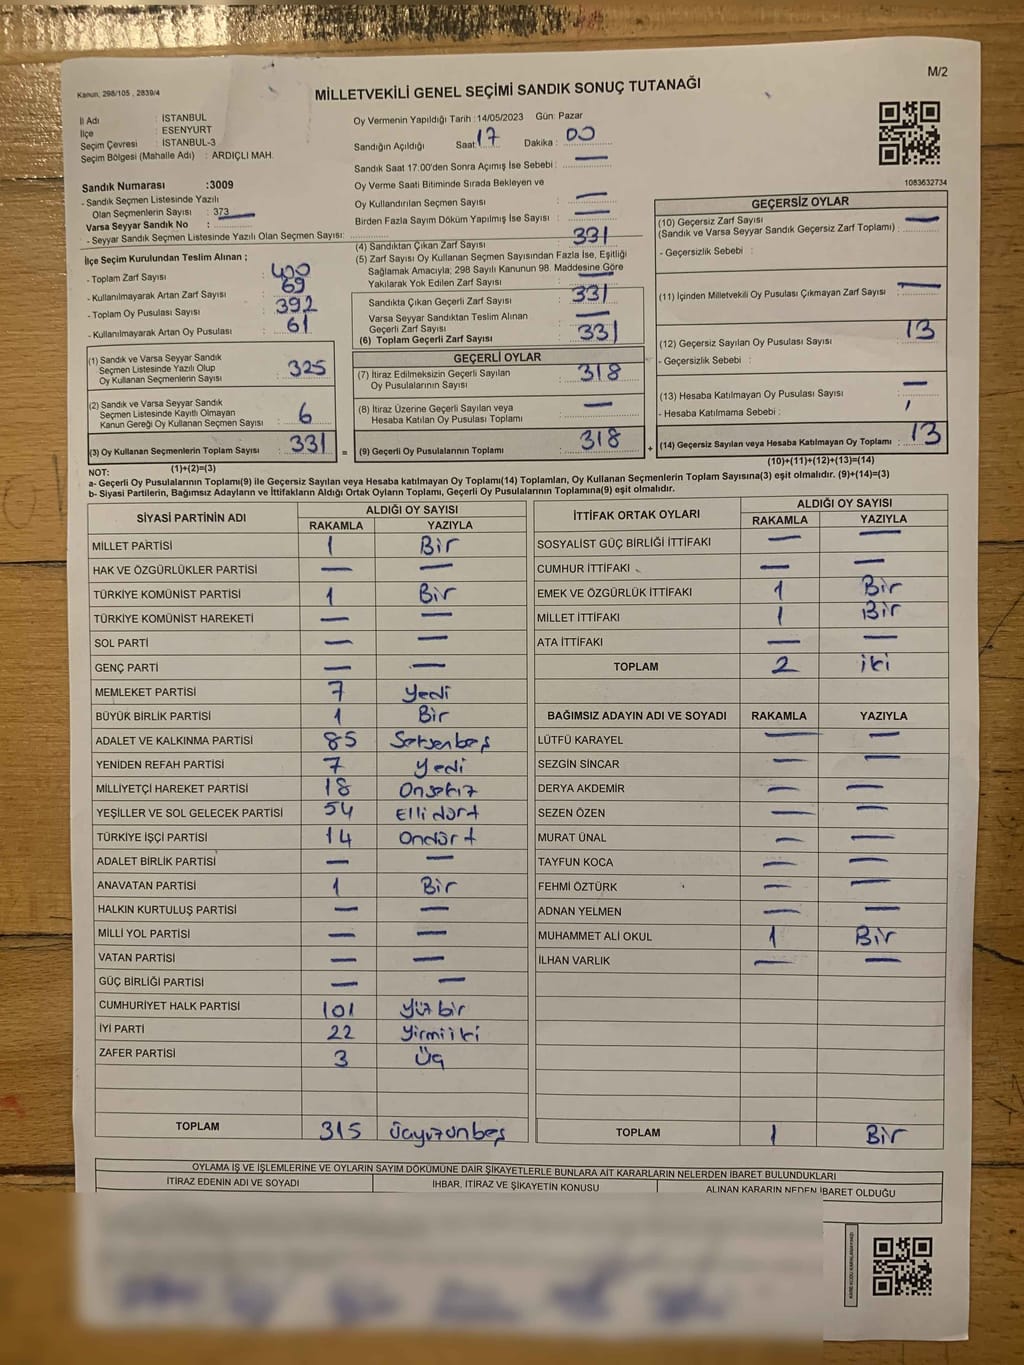 Kanun, 298/105 , 2839/4
MİLLETVEKİLİ GENEL SEÇİMİ SANDIK SONUÇ TUTANAĞI
M/2
İl Adı : İSTANBUL
İlçe : ESENYURT
Seçim Çevresi : İSTANBUL-3
Seçim Bölgesi (Mahalle Adı) : ARDIÇLI MAH.
Oy Vermenin Yapıldığı Tarih : 14/05/2023 Gün: Pazar
Sandığın Açıldığı Saat: 17 Dakika : 00
Sandık Saat 17:00'den Sonra Açımış İse Sebebi : —
Oy Verme Saati Bitiminde Sırada Bekleyen ve
Oy Kullandırılan Seçmen Sayısı : —
Birden Fazla Sayım Döküm Yapılmış İse Sayısı : —
1083632734
Sandık Numarası :3009
- Sandık Seçmen Listesinde Yazılı
Olan Seçmenlerin Sayısı : 373
Varsa Seyyar Sandık No :
- Seyyar Sandık Seçmen Listesinde Yazılı Olan Seçmen Sayısı:
İlçe Seçim Kurulundan Teslim Alınan ;
- Toplam Zarf Sayısı : 400
- Kullanılmayarak Artan Zarf Sayısı : 69
- Toplam Oy Pusulası Sayısı : 392
- Kullanılmayarak Artan Oy Pusulası : 61
(1) Sandık ve Varsa Seyyar Sandık
Seçmen Listesinde Yazılı Olup
Oy Kullanan Seçmenlerin Sayısı : 325
(2) Sandık ve Varsa Seyyar Sandık
Seçmen Listesinde Kayıtlı Olmayan
Kanun Gereği Oy Kullanan Seçmen Sayısı : 6
(3) Oy Kullanan Seçmenlerin Toplam Sayısı : 331
(1)+(2)=(3)
(4) Sandıktan Çıkan Zarf Sayısı : 331
(5) Zarf Sayısı Oy Kullanan Seçmen Sayısından Fazla İse, Eşitliği
Sağlamak Amacıyla; 298 Sayılı Kanunun 98. Maddesine Göre
Yakılarak Yok Edilen Zarf Sayısı : —
Sandıkta Çıkan Geçerli Zarf Sayısı : 331
Varsa Seyyar Sandıktan Teslim Alınan
Geçerli Zarf Sayısı : —
(6) Toplam Geçerli Zarf Sayısı : 331
GEÇERLİ OYLAR
(7) İtiraz Edilmeksizin Geçerli Sayılan
Oy Pusulalarının Sayısı : 318
(8) İtiraz Üzerine Geçerli Sayılan veya
Hesaba Katılan Oy Pusulası Toplamı : —
= (9) Geçerli Oy Pusulalarının Toplamı : 318
GEÇERSİZ OYLAR
(10) Geçersiz Zarf Sayısı
(Sandık ve Varsa Seyyar Sandık Geçersiz Zarf Toplamı) : —
- Geçersizlik Sebebi :
(11) İçinden Milletvekili Oy Pusulası Çıkmayan Zarf Sayısı : —
(12) Geçersiz Sayılan Oy Pusulası Sayısı : 13
- Geçersizlik Sebebi :
(13) Hesaba Katılmayan Oy Pusulası Sayısı : —
- Hesaba Katılmama Sebebi :
+ (14) Geçersiz Sayılan veya Hesaba Katılmayan Oy Toplamı : 13
(10)+(11)+(12)+(13)=(14)
NOT:
a- Geçerli Oy Pusulalarının Toplamı(9) ile Geçersiz Sayılan veya Hesaba katılmayan Oy Toplamı(14) Toplamları, Oy Kullanan Seçmenlerin Toplam Sayısına(3) eşit olmalıdır. (9)+(14)=(3)
b- Siyasi Partilerin, Bağımsız Adayların ve İttifakların Aldığı Ortak Oyların Toplamı, Geçerli Oy Pusulalarının Toplamına(9) eşit olmalıdır.
SİYASİ PARTİNİN ADI ALDIĞI OY SAYISI
RAKAMLA YAZIYLA
MİLLET PARTİSİ 1 Bir
HAK VE ÖZGÜRLÜKLER PARTİSİ — —
TÜRKİYE KOMÜNİST PARTİSİ 1 Bir
TÜRKİYE KOMÜNİST HAREKETİ — —
SOL PARTİ — —
GENÇ PARTİ — —
MEMLEKET PARTİSİ 7 Yedi
BÜYÜK BİRLİK PARTİSİ 1 Bir
ADALET VE KALKINMA PARTİSİ 85 Seksenbeş
YENİDEN REFAH PARTİSİ 7 Yedi
MİLLİYETÇİ HAREKET PARTİSİ 18 Onsekiz
YEŞİLLER VE SOL GELECEK PARTİSİ 54 Ellidört
TÜRKİYE İŞÇİ PARTİSİ 14 Ondört
ADALET BİRLİK PARTİSİ — —
ANAVATAN PARTİSİ 1 Bir
HALKIN KURTULUŞ PARTİSİ — —
MİLLİ YOL PARTİSİ — —
VATAN PARTİSİ — —
GÜÇ BİRLİĞİ PARTİSİ — —
CUMHURİYET HALK PARTİSİ 101 Yüz bir
İYİ PARTİ 22 Yirmiiki
ZAFER PARTİSİ 3 Üç
TOPLAM 315 Üçyüzonbeş
İTTİFAK ORTAK OYLARI ALDIĞI OY SAYISI
RAKAMLA YAZIYLA
SOSYALİST GÜÇ BİRLİĞİ İTTİFAKI — —
CUMHUR İTTİFAKI — —
EMEK VE ÖZGÜRLÜK İTTİFAKI 1 Bir
MİLLET İTTİFAKI 1 Bir
ATA İTTİFAKI — —
TOPLAM 2 iki
BAĞIMSIZ ADAYIN ADI VE SOYADI RAKAMLA YAZIYLA
LÜTFÜ KARAYEL — —
SEZGİN SİNCAR — —
DERYA AKDEMİR — —
SEZEN ÖZEN — —
MURAT ÜNAL — —
TAYFUN KOCA — —
FEHMİ ÖZTÜRK — —
ADNAN YELMEN — —
MUHAMMET ALİ OKUL 1 Bir
İLHAN VARLIK — —
TOPLAM 1 Bir
OYLAMA İŞ VE İŞLEMLERİNE VE OYLARIN SAYIM DÖKÜMÜNE DAİR ŞİKAYETLERLE BUNLARA AİT KARARLARIN NELERDEN İBARET BULUNDUKLARI
İTİRAZ EDENİN ADI VE SOYADI İHBAR, İTİRAZ VE ŞİKAYETİN KONUSU ALINAN KARARIN NEDEN İBARET OLDUĞU